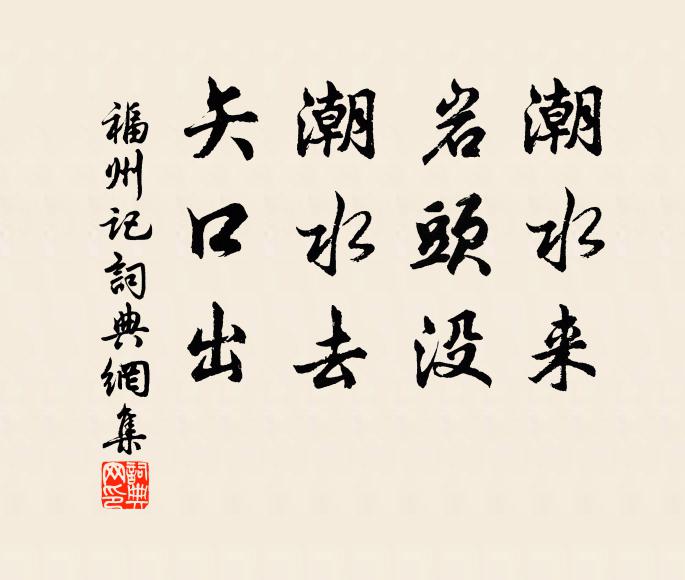 潮水来
岩頭没
潮水去
矢口出
福州记詞典網集
詞典网印